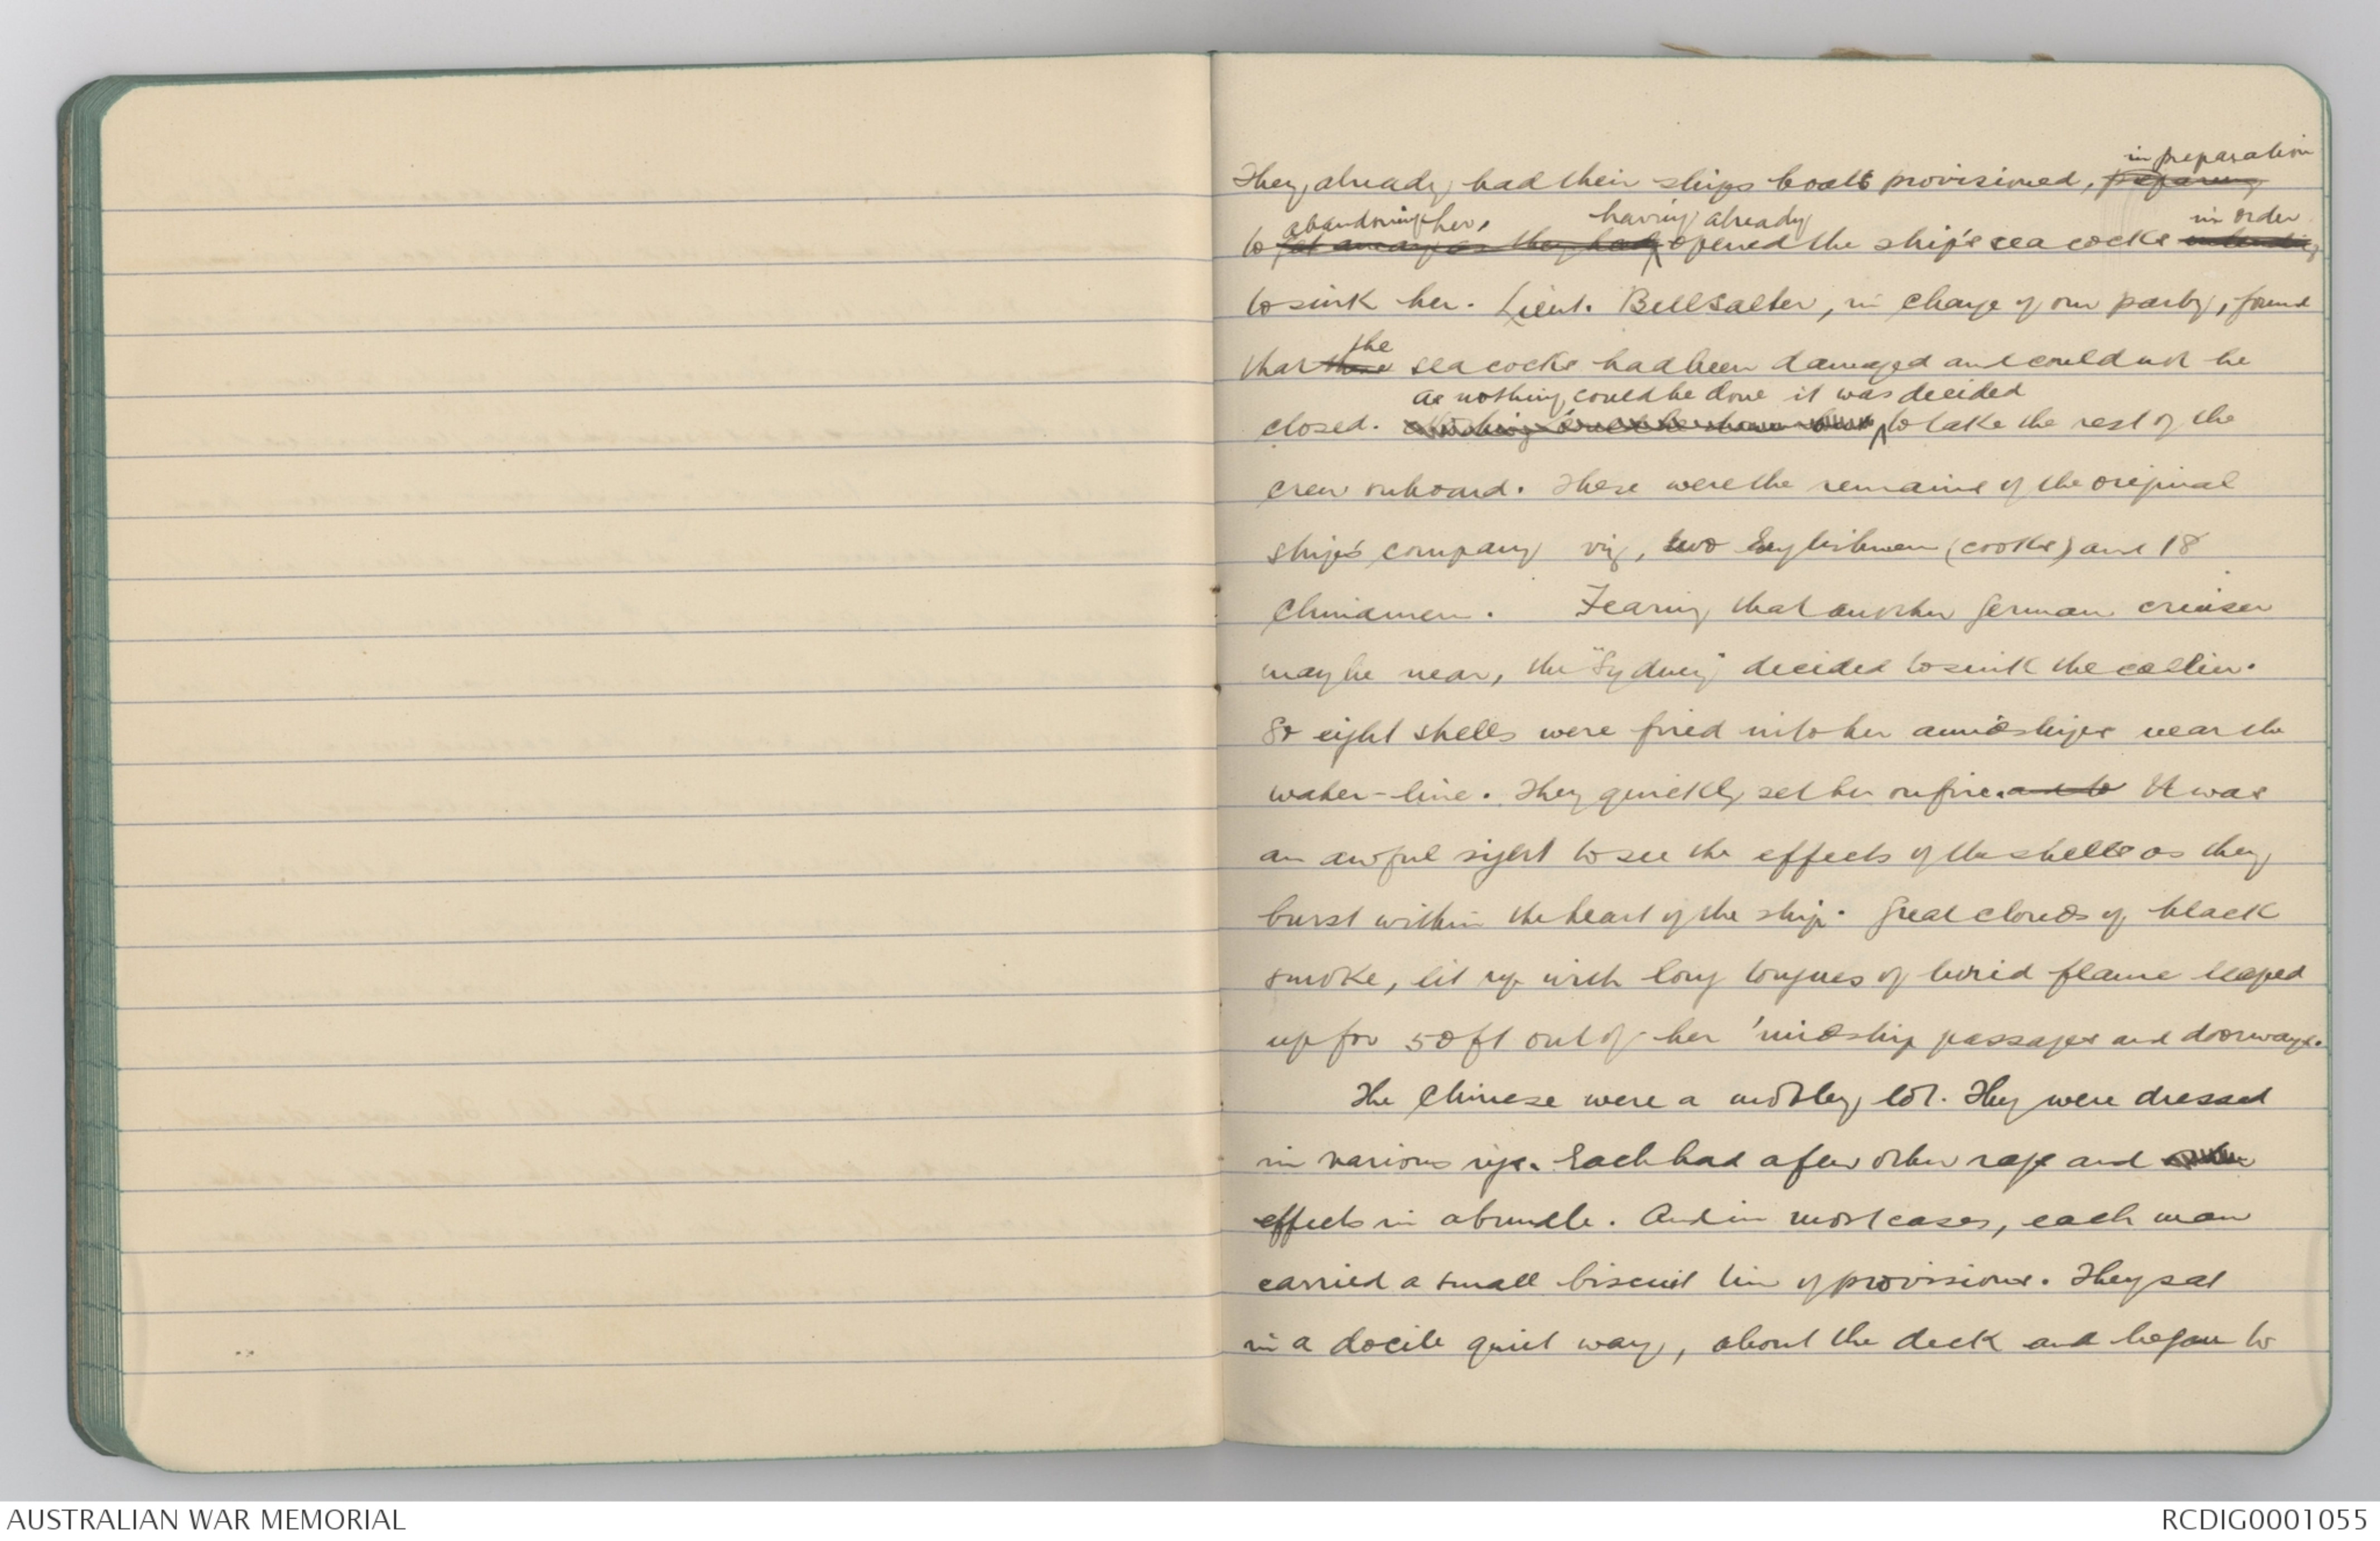 They already had their ships boats provisioned, preparing in preparation
to get away as they had abandoning her, having already opened the ship's sea cocks intending in order
to sink her. Lieut. Bellsalter, in charge of our party, found
that these the sea cocks had been damaged and could not be
closed. as nothing could be done it was decided to take the rest of the
crew onboard. These were the remains of the original
ship's company viz, two Englishmen (cooks) and 18
Chinamen. Fearing that another German cruiser
maybe near, the "Sydney" decided to sink the collier.
So eight shells were fired into her amidships near the
water-line. They quickly set her on fire. and to It was
an awful sight to see the effects of the shells as they
burst within the heart of the ship. Great clouds of black
smoke, lit up with long tongues of lurid flame leaped
up for 50 ft out of her 'midship passages and doorways.
The Chinese were a motley lot. They were dressed
in various rigs. Each had a few other rags and
effects in a bundle. And in most cases, each man
carried a small biscuit tin of provisions. They sat
in a docile quiet way, about the deck and began to
AUSTRALIAN WAR MEMORIAL
RCDIG0001055